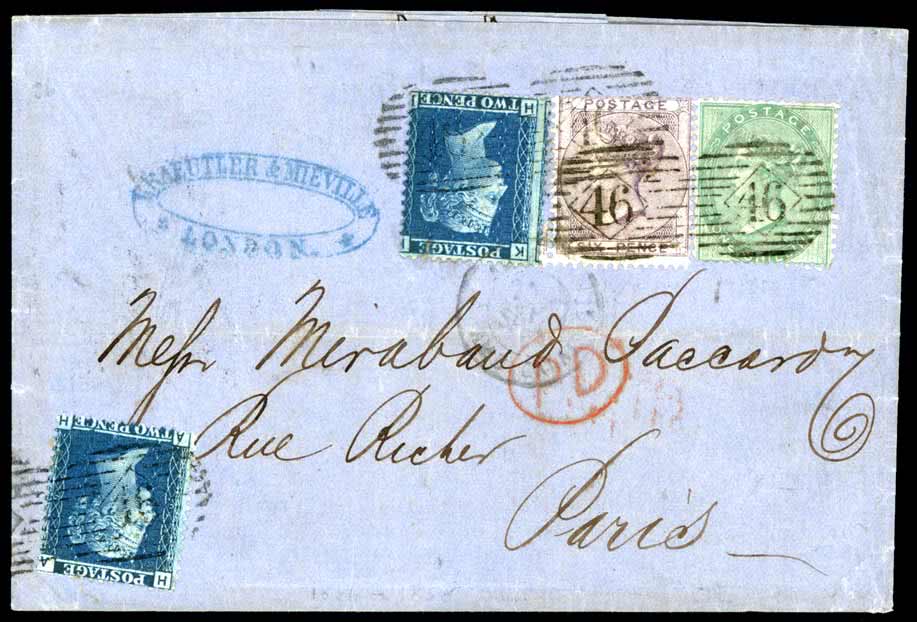 TWO PENCE
POSTAGE
POSTAGE
SIX PENCE
46
POSTAGE
46
& MIEVILLE
LONDON.
PD
Messrs Mirabaud Paccard
Rue Richer
Paris
TWO PENCE
POSTAGE